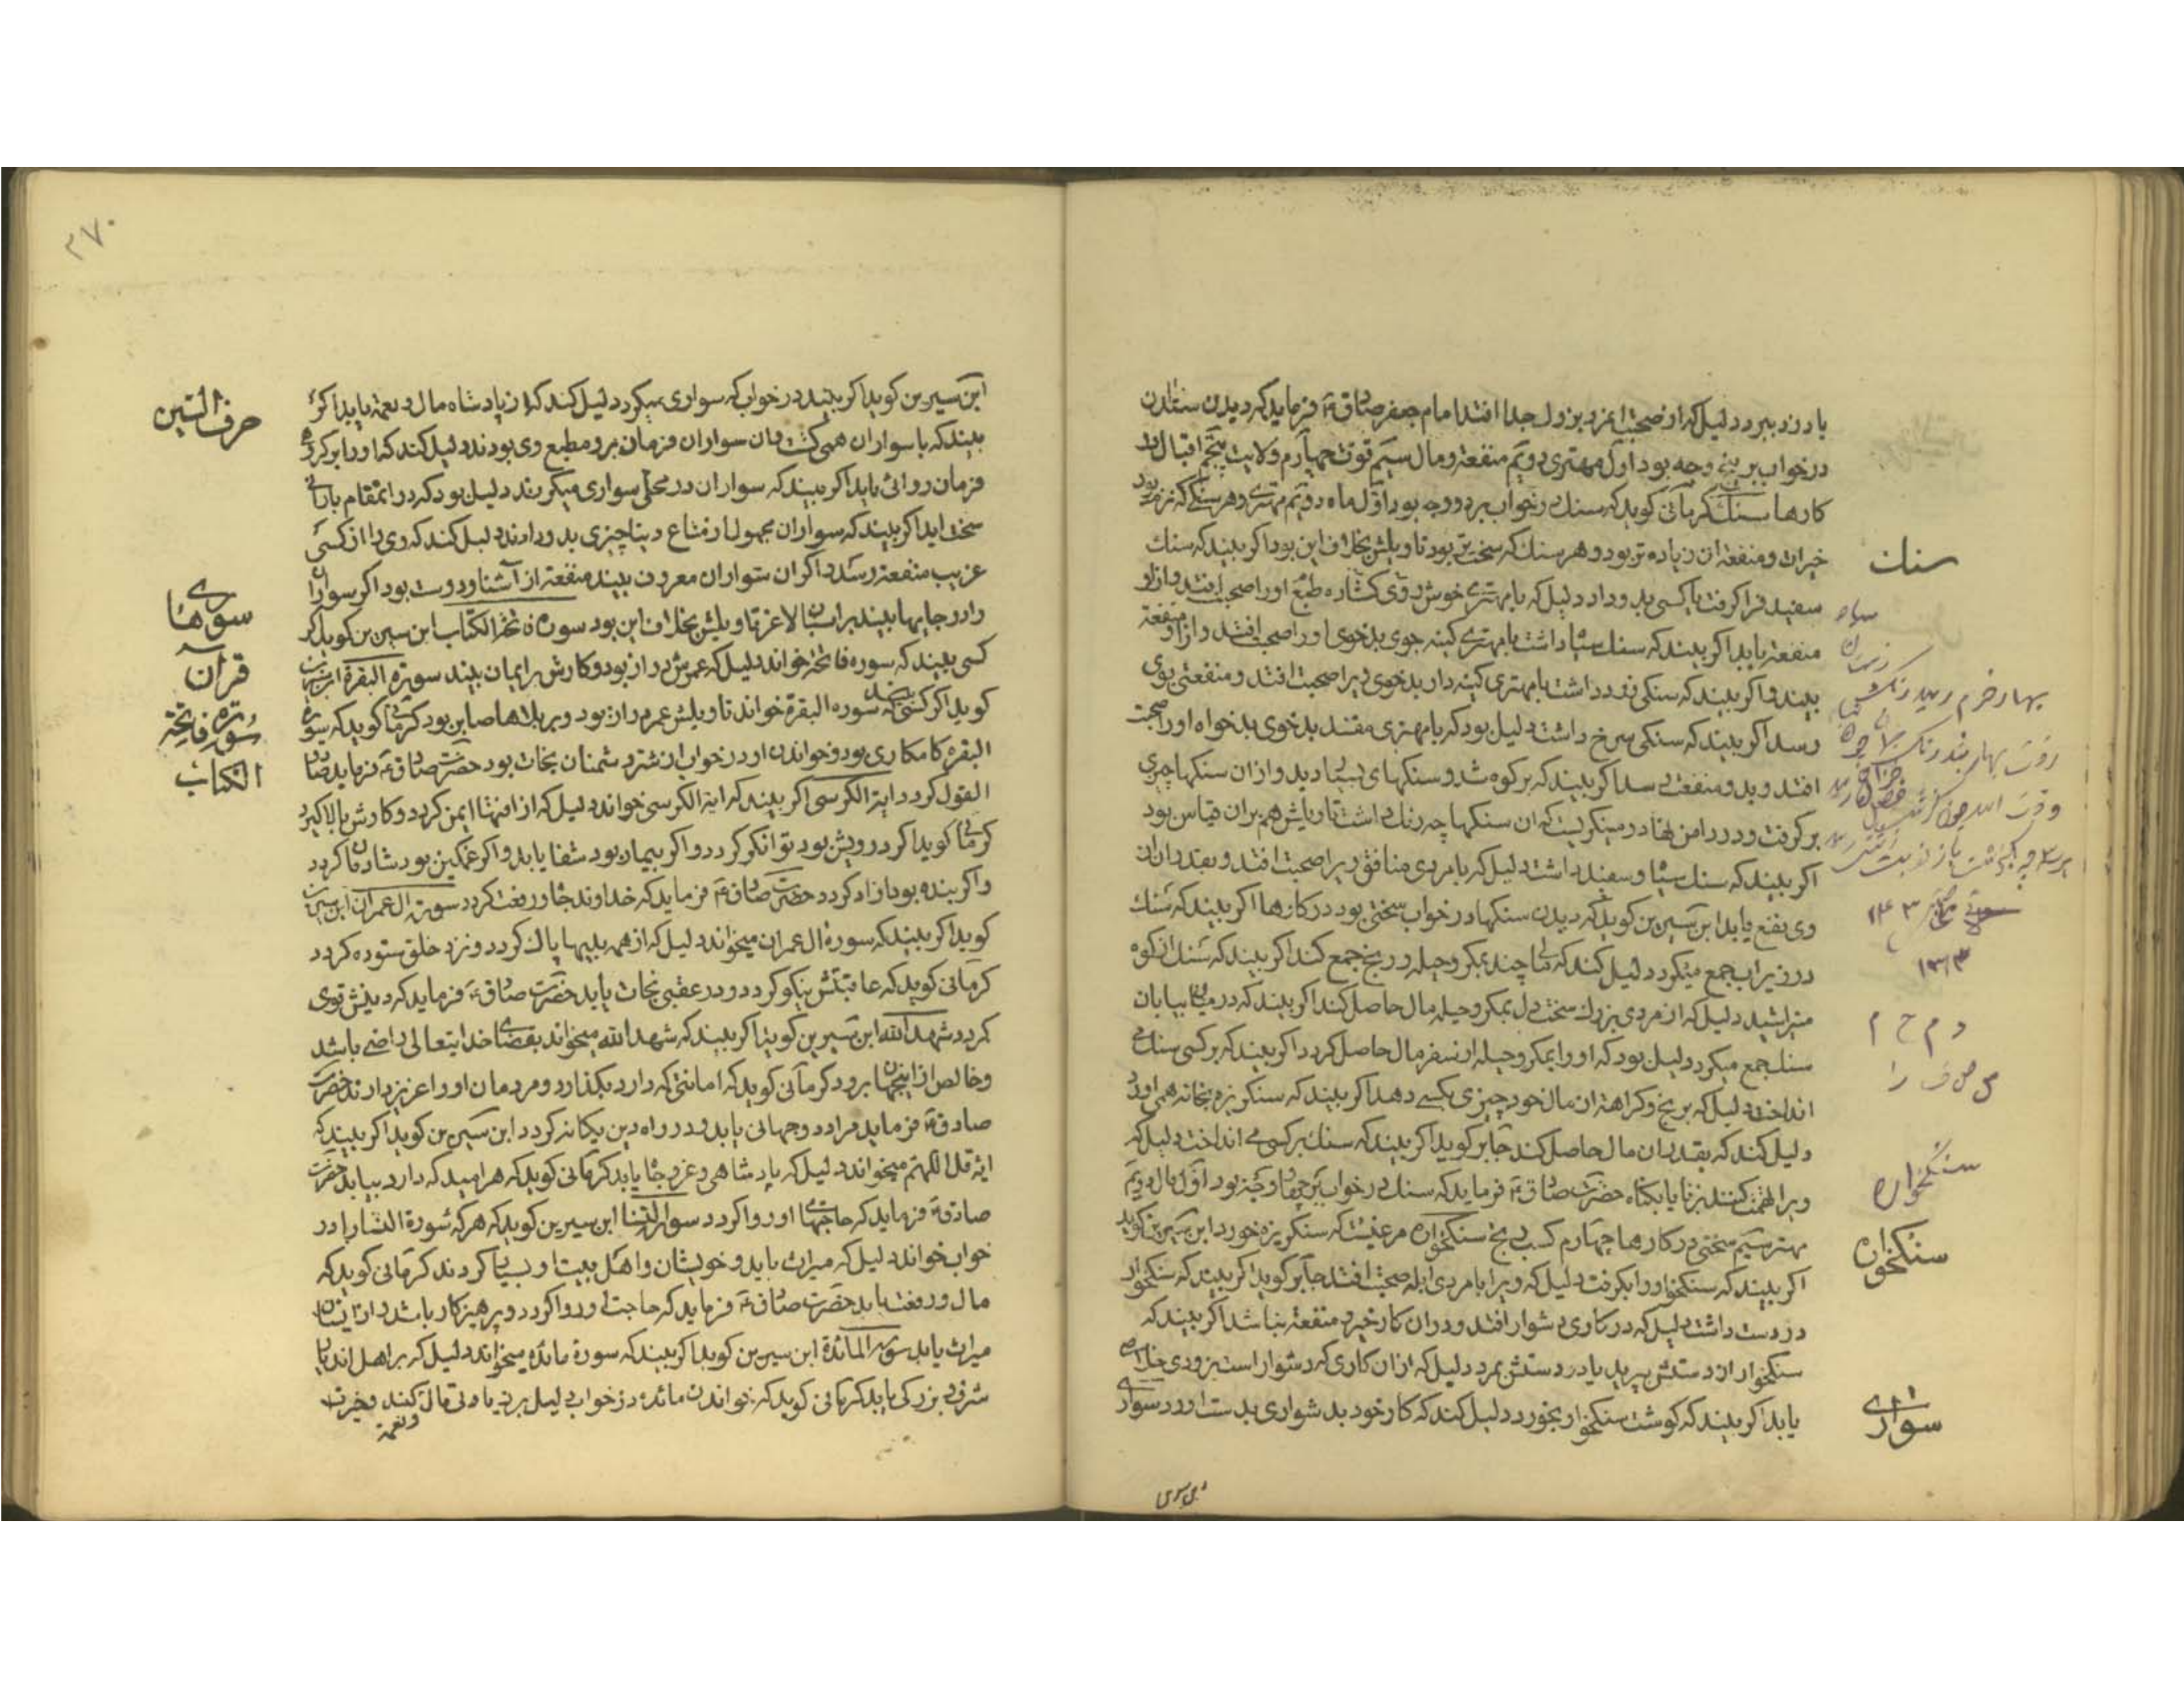 یا دزد ببرد دلیل که از صحبت
درخواب بر پنج وجه بود اول مهتری دویم منفعة و مال سیم قوت چهارم ولایت پنجم اقبال
کارها سنك کرمانی کوید که سنك درخواب بر دو وجه بود اول
خیرات و منفعة ان زیاده تر بود و هر سنك که سخت تر بود تاویلش بخلاف این بود اکر بیند که سنك
سفید فرا کرفت یا کسی بدو داد دلیل که با مهتری خوش
منفعة یابد اکر بیند که سنك سیاه داشت با مهتری کینه جوی بدخوی او را صحبت افتد و از او منفعة
بیند و اکر بیند که سنکی زرد داشت با مهتری کینه دار بدخوی ویرا صحبت افتد و منفعتی بوی
رسد اکر بیند که سنکی سرخ داشت دلیل بود که با مهتری مفسد بدخوی بدخواه او را صحبت
افتد و بدو منفعت رسد اکر بیند که بر کوه شد و سنکهای بسیار دید و از ان سنکها چیزی
بر کرفت و در دامن نهاد و مینکریست که ان سنکها چه رنك داشت تاویلش هم بران قیاس بود
اکر بیند که سنك سیاه و سفید داشت دلیل که با مردی منافق ویرا صحبت افتد و بقدر ان از
وی نفع یابد ابن سیرین کوید که دیدن سنکها در خواب سختی بود در کارها اکر بیند که سنك
در زیر اب جمع میکرد دلیل کند که مال چند بمکر و حیله و رنج جمع کند اکر بیند که سنك از کوه
میتراشید دلیل که از مردی بزرك سخت دل بمکر و حیله مال حاصل کند اکر بیند که در میان بیابان
سنك جمع میکرد دلیل بود که او را بمکر و حیله از سفر مال حاصل کردد اکر بیند که بر کسی سنك
انداخت دلیل که برنج و کراهة از مال خود چیزی بکسی دهد اکر بیند که سنکریزه بخانه همی اورد
دلیل کند که بقدر ان مال حاصل کند جابر کوید اکر بیند که سنك بر کسی می انداخت دلیل که
ویرا تهمت کنند بزنا یا بکناه حضرت صادق فرماید که سنك در خواب بر چهار وجه بود اول مال دویم
مهتر سیم سختی در کارها چهارم کسب برنج سنکخواره مرغیست که سنکریزه خورد ابن سیرین کوید
اکر بیند که سنکخوار او را بکرفت دلیل که ویرا با مردی ابله صحبت افتد جابر کوید اکر بیند که سنکخوار
در دست داشت دلیل که در کاری دشوار افتد و در ان کار خیر و منفعة نباشد اکر بیند که
سنکخوار از دستش بپرید یا در دستش بمرد دلیل که از ان کاری که دشوار است بزودی خلاص
یابد اکر بیند که کوشت سنکخوار بخورد دلیل کند که کار خود بدشواری بدست اورد سواری
سنك
سیاه
۱۳۴۳
سنکخواره
سنکخواره
سواری
۲۷۰
ابن سیرین کوید اکر بیند در خواب که سواری میکرد دلیل کند که از پادشاه مال و نعمة یابد اکر
بیند که با سواران همی کشت و ان سواران فرمان بر و مطیع وی بودند دلیل کند که او را بر کروه
فرمان روائی یابد اکر بیند که سواران در محلی سواری میکردند دلیل بود که در انمقام بارانی
سخت اید اکر بیند که سواران مجهول از متاع دنیا چیزی بدو دادند دلیل کند که وی را از کسی
غریب منفعة رسد و اکر ان سواران معروف بیند منفعة از آشنا و دوست بود اکر سواران
را در جایها بیند بر اسبان لاغر تاویلش بخلاف این بود سوره فاتحة الکتاب ابن سیرین کوید اکر
کسی بیند که سوره فاتحة خواند دلیل که عمرش دراز بود و کارش بر ایمان بیند سورة البقرة ابن سیرین
کوید اکر کسی بیند که سوره البقرة خواند تاویلش عمر دراز بود و بر بلاها صابر بود کرمانی کوید که سوره
البقره کامکاری بود و خواندن او در خواب از شر دشمنان نجات بود حضرت صادق فرماید صادق
القول کردد ایة الکرسی اکر بیند که ایة الکرسی خواند دلیل که از افتها ایمن کردد و کارش بالا کیرد
کرمانی کوید اکر درویش بود توانکر کردد و اکر بیمار بود شفا یابد و اکر غمکین بود شادمان کردد
و اکر بنده بود ازاد کردد حضرت صادق فرماید که خداوند جاه و رفعت کردد سورة ال عمران ابن سیرین
کوید اکر بیند که سورة ال عمران میخواند دلیل که از همه بلیها پاك کردد و نزد خلق ستوده کردد
کرمانی کوید که عاقبتش نیکو کردد و در عقبی نجات یابد حضرت صادق فرماید که دینش قوی
کردد شهد الله ابن سیرین کوید اکر بیند که شهد الله میخواند بقضای خدایتعالی راضی باشد
و خالص از اینجهان برود کرمانی کوید که امانتی که دارد بکذارد و مردمان او را عزیز دارند حضرت
صادق فرماید مراد دو جهانی یابد و در راه دین یکانه کردد ابن سیرین کوید اکر بیند که
ایة قل اللهم میخواند دلیل که پادشاهی و عز و جاه یابد کرمانی کوید که هر امید که دارد بیابد حضرت
صادق فرماید که حاجتهای او روا کردد سورة النسا ابن سیرین کوید که هر که سورة النسا را در
خواب خواند دلیل که میراث یابد و خویشان و اهل بیت او بسیار کردند کرمانی کوید که
مال و رفعت یابد حضرت صادق فرماید که حاجت او روا کردد و پرهیزکار باشد و از
میراث یابد سورة المائدة ابن سیرین کوید اکر بیند که سورة مائده میخواند دلیل که بر اهل
شرف و بزرکی یابد کرمانی کوید که خواندن مائده در خواب دلیل بر زیادتی مال کند و خیرت
و نعمة
حرف السین
سوره‌های
قرآن
سورة فاتحة
الکتاب